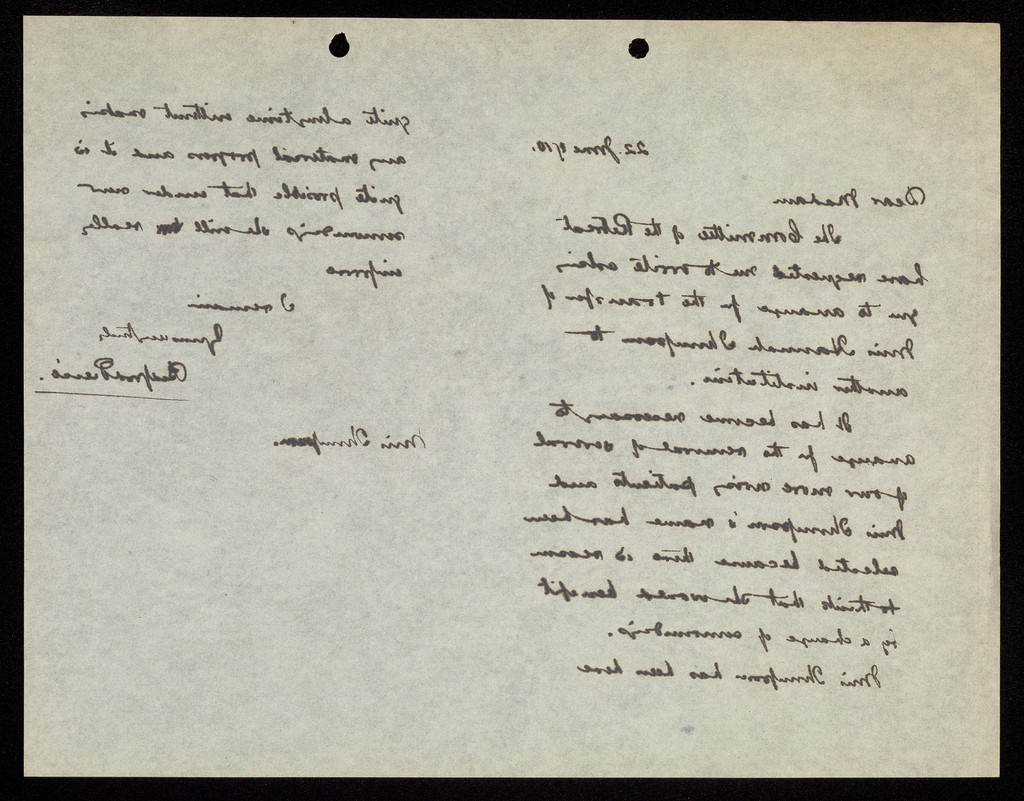 22 June 1910.
Dear Madam
The Committee of the Retreat
have requested me to write asking
you to arrange for the transfer of
Miss Hannah Thompson to
another institution.
It has become necessary to
arrange for the removal of several
of our more noisy patients and
Miss Thompson's name has been
selected because there is reason
to think that she would benefit
by a change of surroundings.
Miss Thompson has been here
quite a long time without making
any material progress and it is
quite possible that under new
surroundings she will really
improve
I remain
Yours truly
Bedford Pierce.
Miss Thompson.